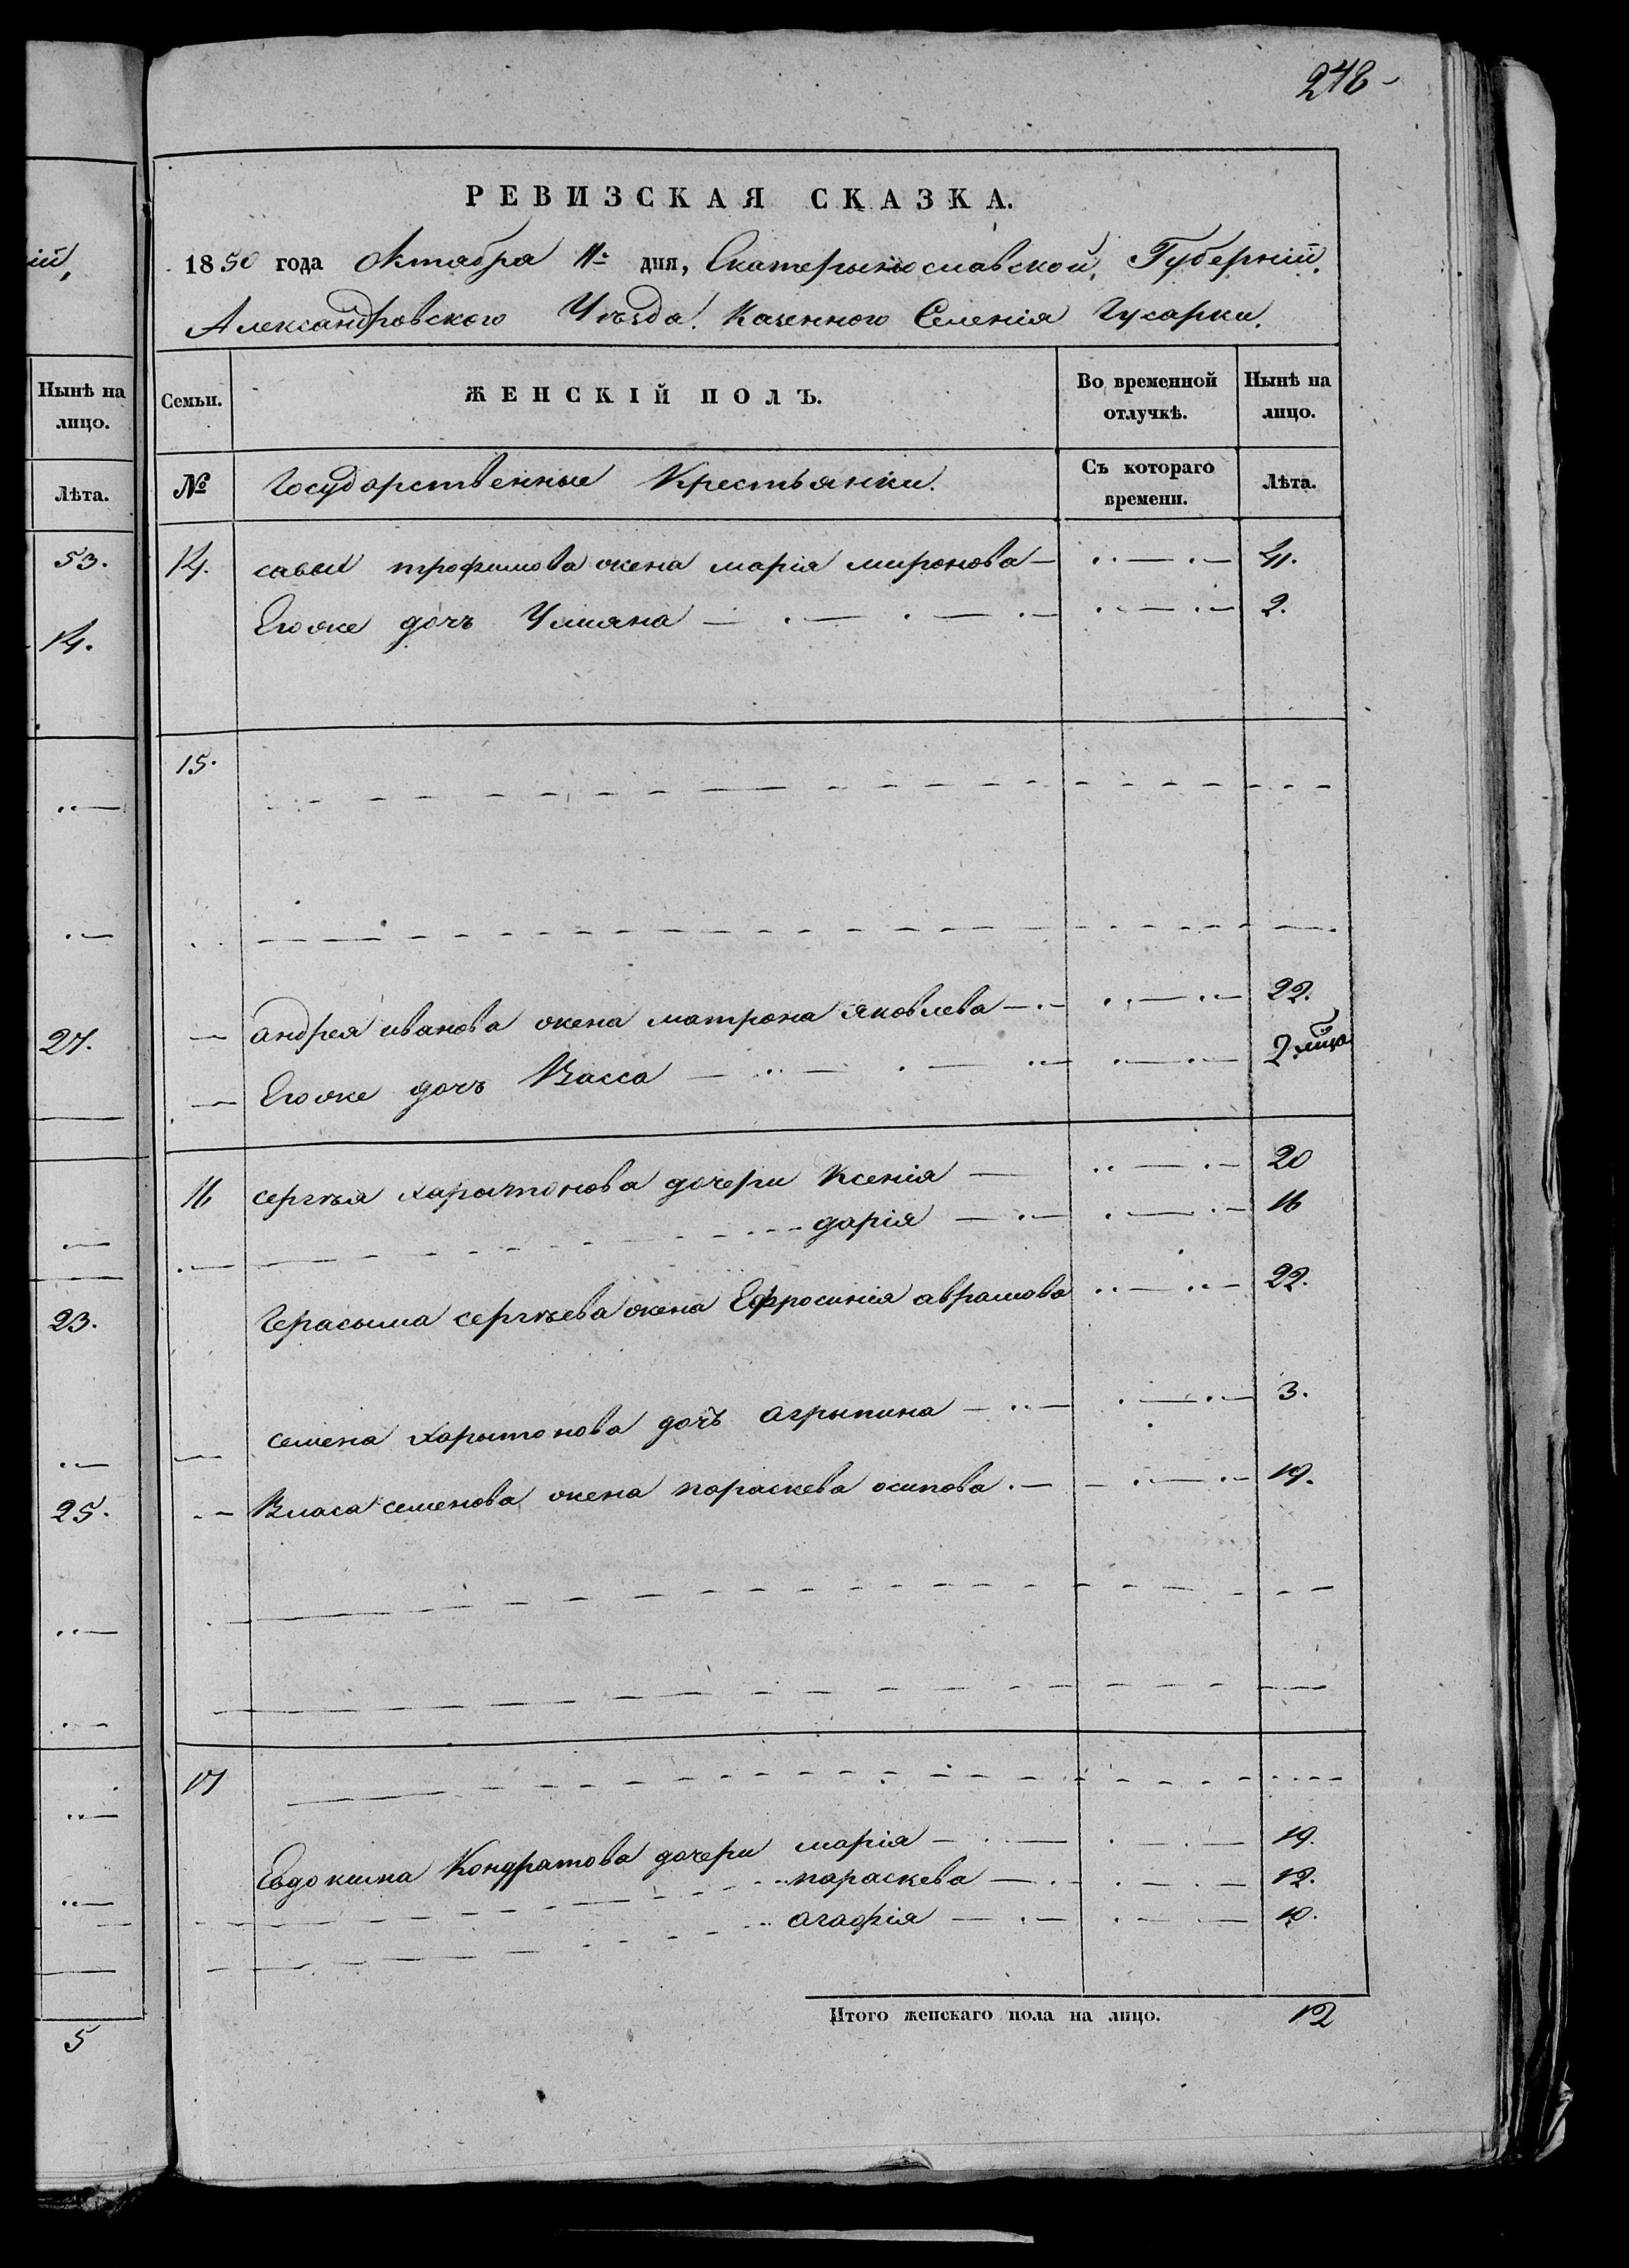 248
РЕВИЗСКАЯ СКАЗКА.
1850 года Октабра 11. дня, Екатерынославской, Губерній.
Александровского Уѣзда. Казенного Селенія Гусарки.
ій,
Нынѣ на лицо.
Лѣта.
53.
14.
27.
23.
25.
5
Семьи. ЖЕНСКІЙ ПОЛЪ. Во временной отлучкѣ. Нынѣ на лицо.
№ Государственные Крестьянки. Съ котораго времени. Лѣта.
14. савы трофимова жена марія миронова 41.
Егоже дочъ Улияна 2.
15.
андрея иванова жена матрона яковлева 22.
Егоже дочъ Васса 2
16 сергѣя харытонова дочери Ксенія 20
дарія 16
Герасыма сергѣева жена Ефросинія аврамова 22.
семена харытонова дочъ агрыпина 3.
Власа семенова жена параскева осипова. 19.
17
Евдокима Кондратова дочери марія 19.
параскева 12.
агафія 10.
Итого женскаго пола на лицо. 12